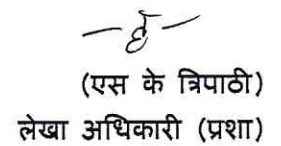 -ह-
(एस के त्रिपाठी)
लेखा अधिकारी (प्रशा)